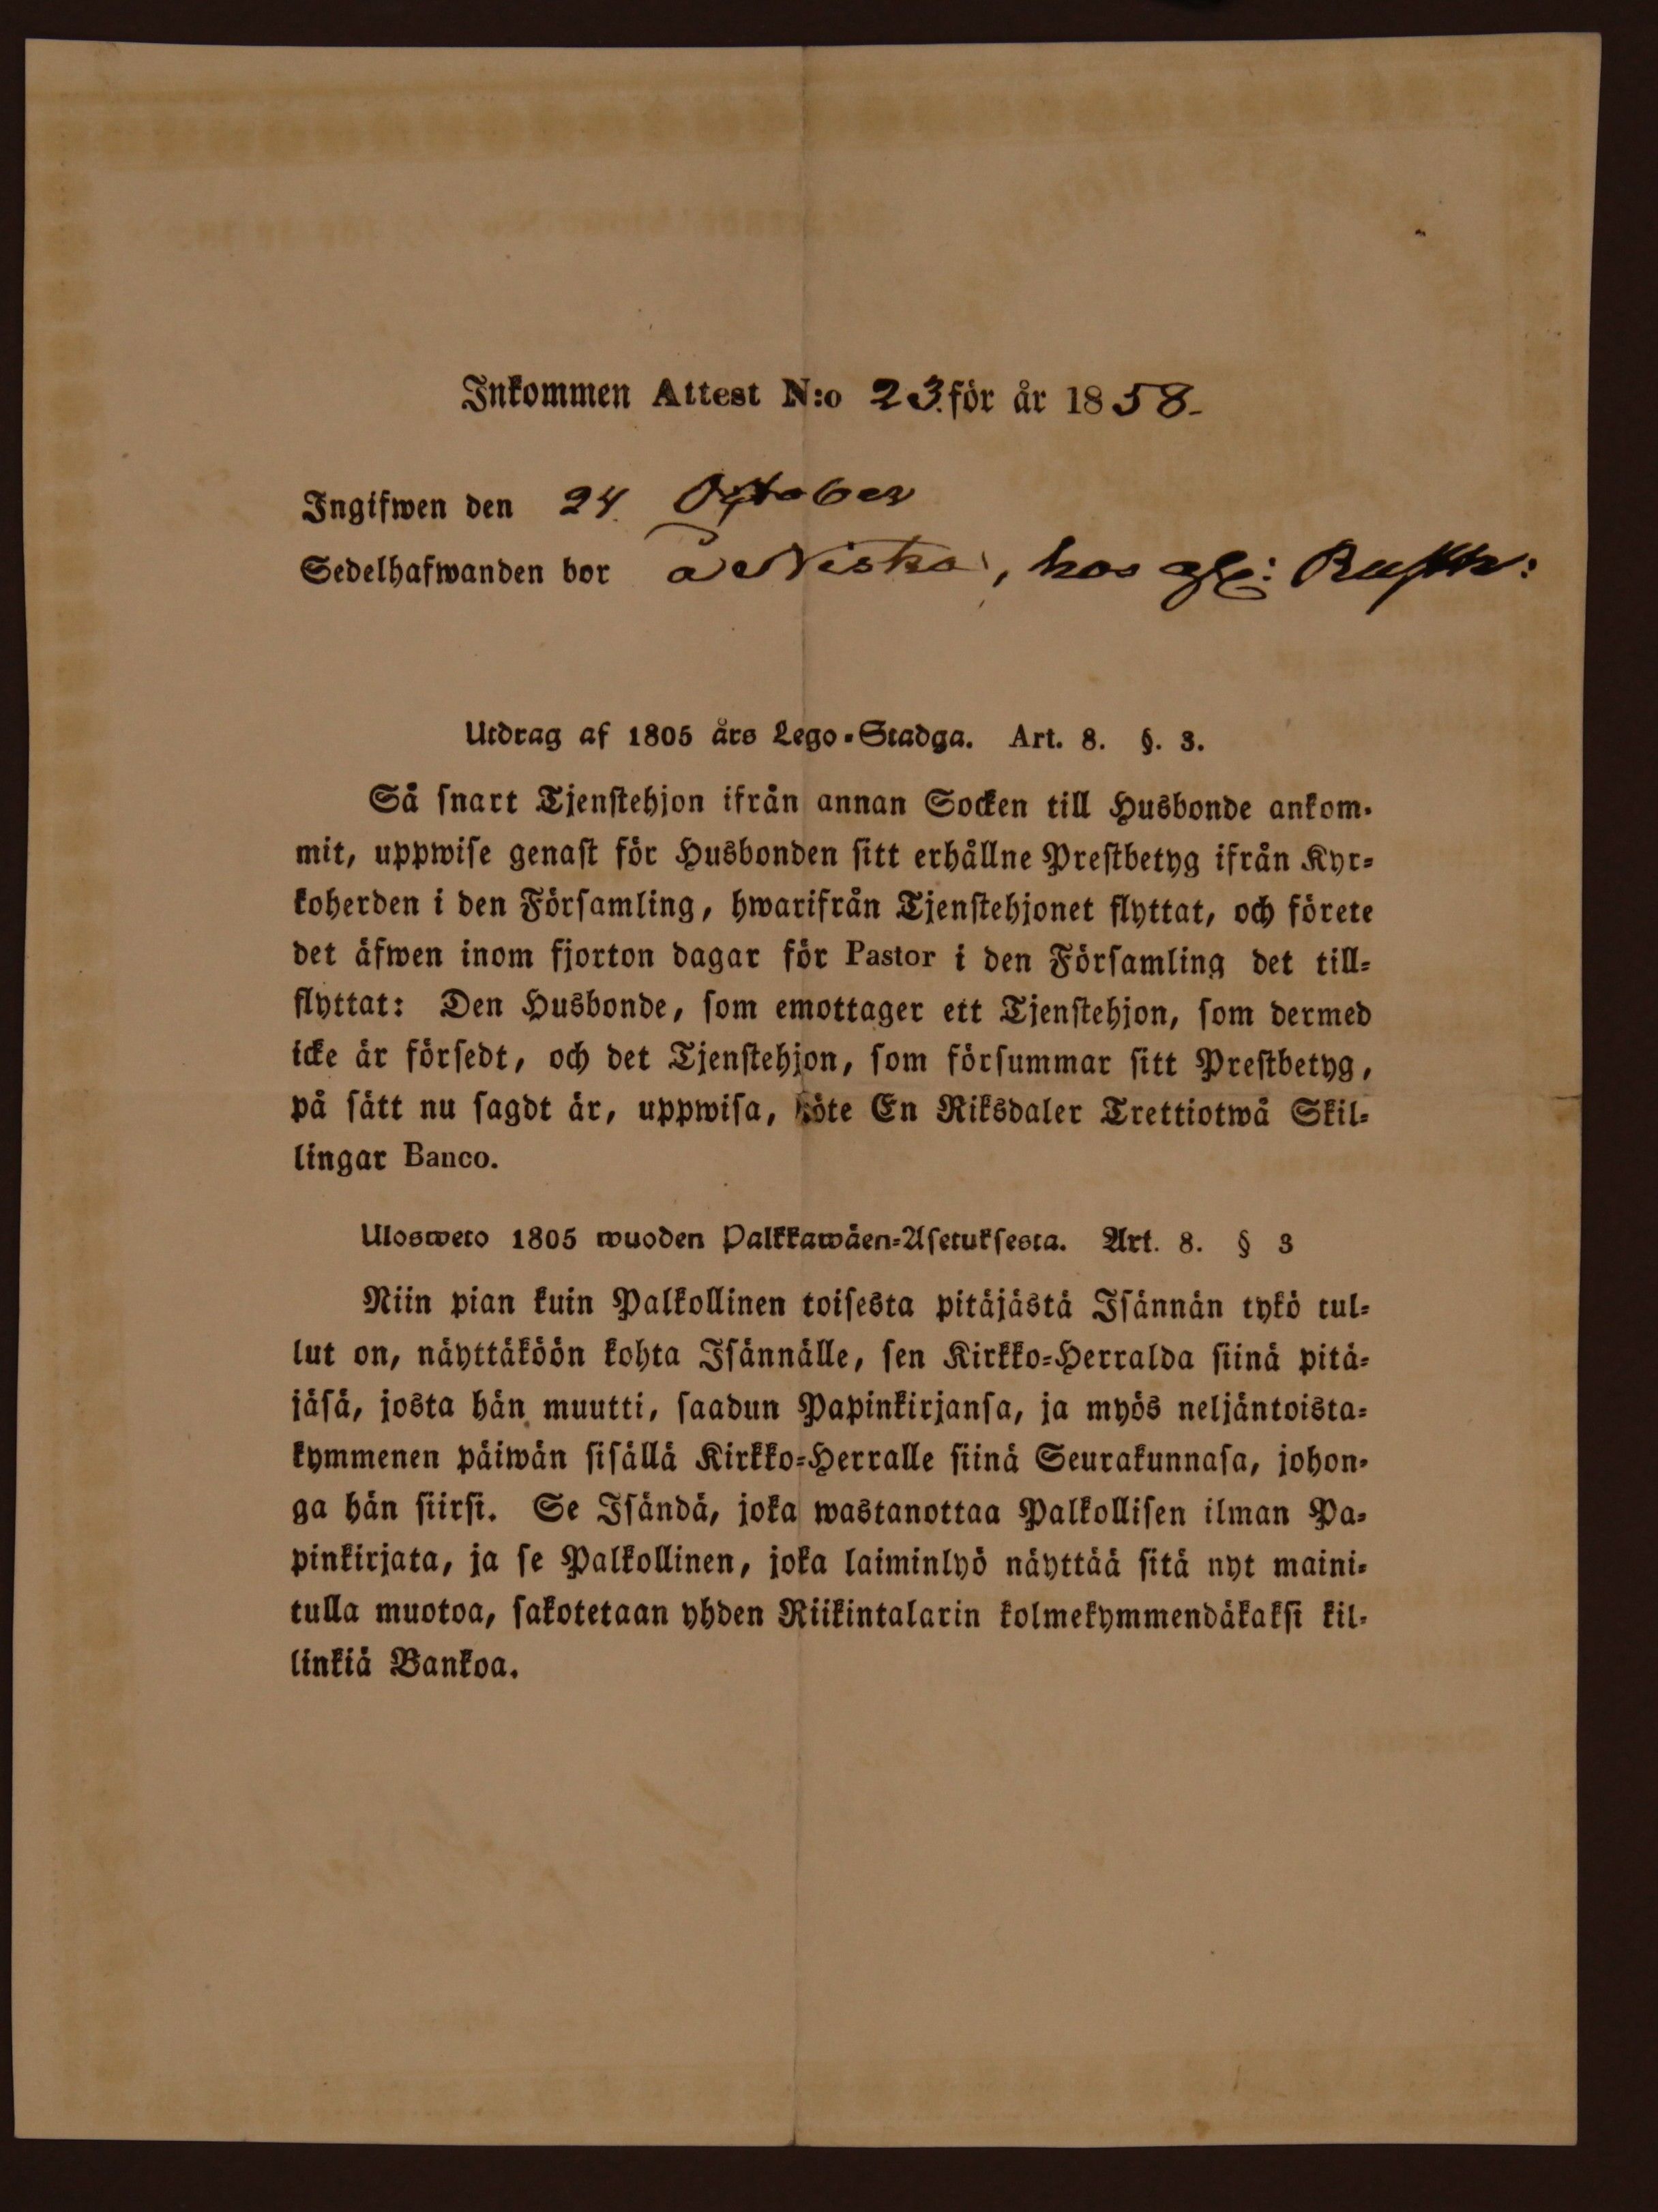 Inkommen Attest N:o 23. för år 1858-
Ingifwen den 24. October
Sedelhafwanden bor å Niska, hos
Utdrag af 1805 års Lego-Stadga. Art. 8. §. 3.
Så snart Tjenstehjon ifrån annan Socken till Husbonde ankom-
mit, uppwise genast för Husbonden sitt erhållne Prestbetyg ifrån Kyr-
koherden i den Församling, hwarifrån Tjenstehjonet flyttat, och förete
det äfwen inom fjorton dagar för Pastor i den Församling det till-
flyttat: Den Husbonde, som emottager ett Tjenstehjon, som dermed
icke är försedt, och det Tjenstehjon, som försummar sitt Prestbetyg,
på sätt nu sagdt är, uppwisa, böte En Riksdaler Trettiotwå Skil-
lingar Banco.
Ulosweto 1805 wuoden Palkkawäen-Asetuksesta. Art. 8. § 3
Niin pian kuin Palkollinen toisesta pitäjästä Isännän tykö tul-
lut on, näyttäköön kohta Isännälle, sen Kirkko-Herralda siinä pitä-
jäsä, josta hän muutti, saadun Papinkirjansa, ja myös neljäntoista-
kymmenen päiwän sisällä Kirkko-Herralle siinä Seurakunnasa, johon-
ga hän siirsi. Se Isändä, joka wastanottaa Palkollisen ilman Pa-
pinkirjata, ja se Palkollinen, joka laiminlyö näyttää sitä nyt maini-
tulla muotoa, sakotetaan yhden Riikintalarin kolmekymmendäkaksi kil-
linkiä Bankoa.